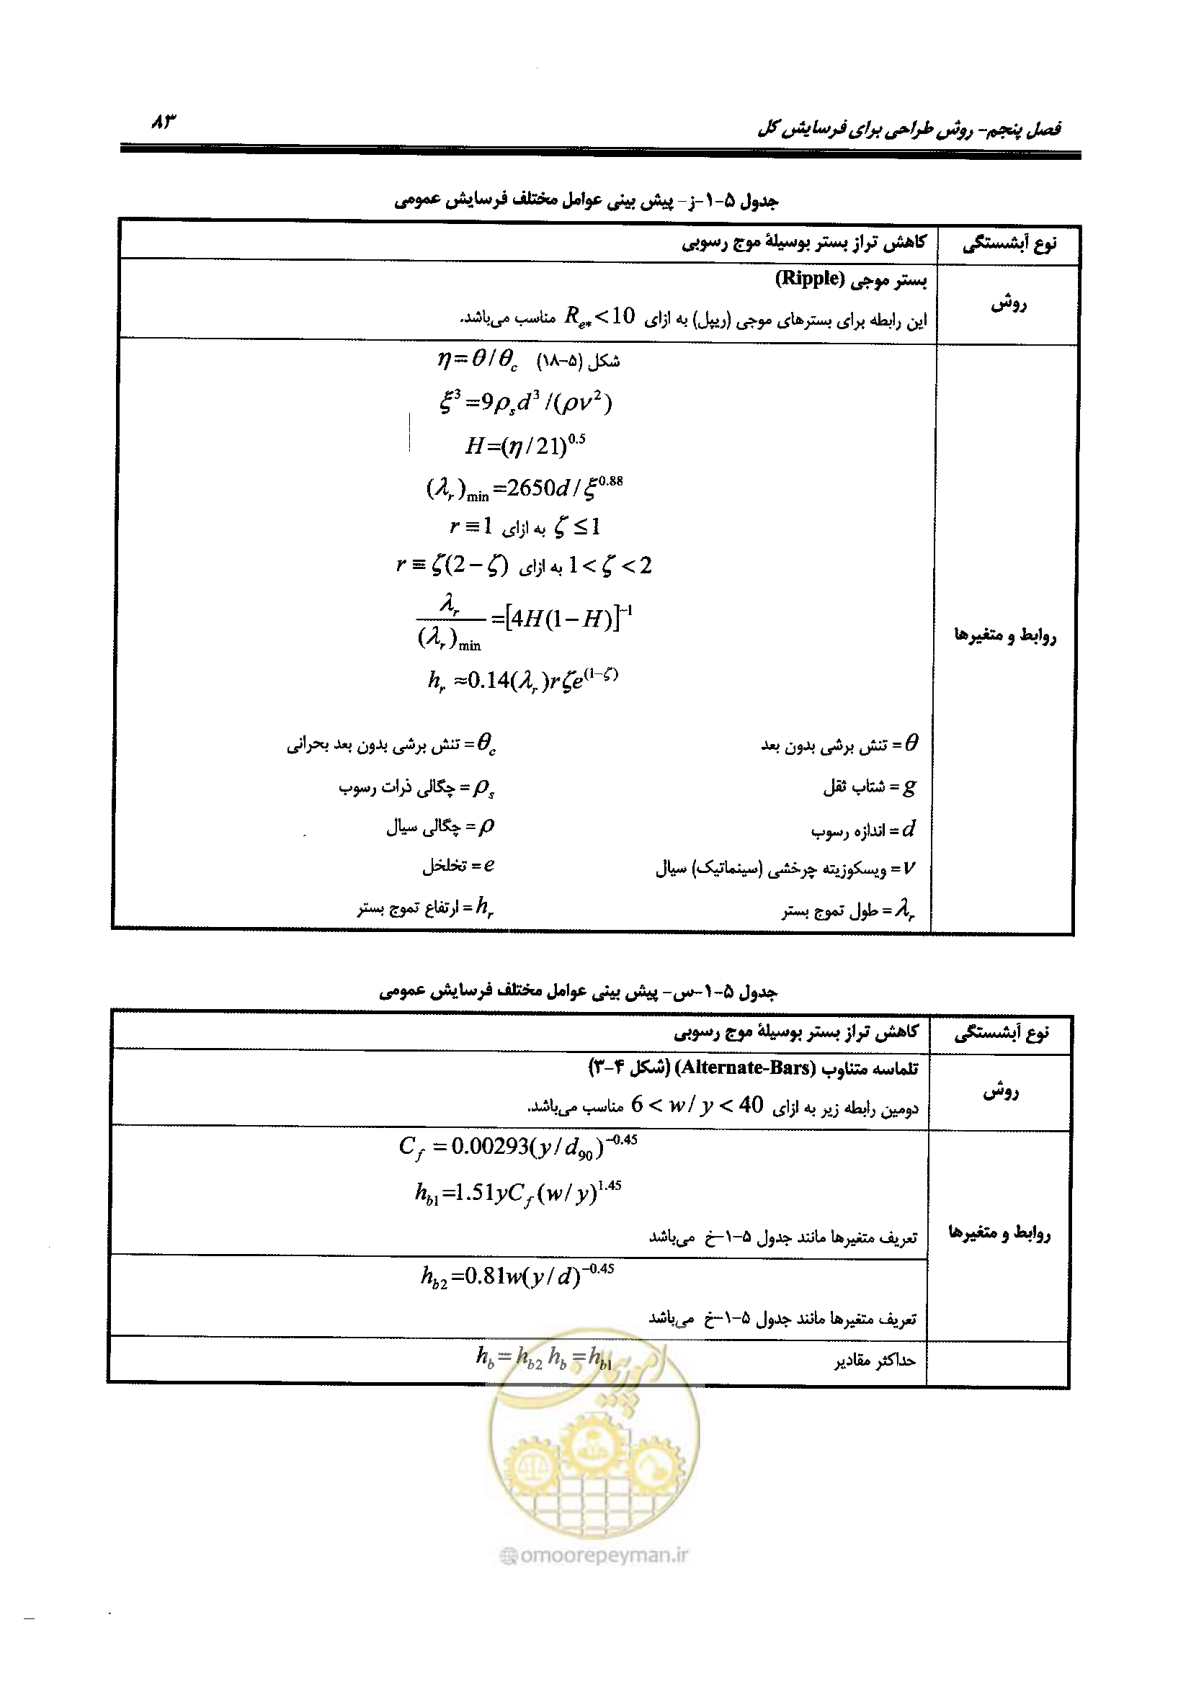 فصل پنجم- روش طراحی برای فرسایش کل ۸۳
جدول ۵-۱-ز- پیش بینی عوامل مختلف فرسایش عمومی
نوع آبشستگی کاهش تراز بستر بوسیلهٔ موج رسوبی
روش
بستر موجی (Ripple)
این رابطه برای بسترهای موجی (ریپل) به ازای Re* < 10 مناسب می‌باشد.
روابط و متغیرها
η = θ / θc شکل (۵-۱۸)
ξ³ = 9ρs d³ / (ρν²)
H = (η / 21)^0.5
(λr)min = 2650d / ξ^0.88
r ≡ 1 به ازای ζ ≤ 1
r ≡ ζ(2 − ζ) به ازای 1 < ζ < 2
λr / (λr)min = [4H(1 − H)]^−1
hr ≈ 0.14(λr)rζe^(1−ζ)
θ = تنش برشی بدون بعد θc = تنش برشی بدون بعد بحرانی
g = شتاب ثقل ρs = چگالی ذرات رسوب
d = اندازه رسوب ρ = چگالی سیال
ν = ویسکوزیته چرخشی (سینماتیک) سیال e = تخلخل
λr = طول تموج بستر hr = ارتفاع تموج بستر
جدول ۵-۱-س- پیش بینی عوامل مختلف فرسایش عمومی
نوع آبشستگی کاهش تراز بستر بوسیلهٔ موج رسوبی
روش
تلماسه متناوب (Alternate-Bars) (شکل ۴-۳)
دومین رابطه زیر به ازای 6 < w / y < 40 مناسب می‌باشد.
روابط و متغیرها
Cf = 0.00293(y / d90)^−0.45
hb1 = 1.51yCf(w / y)^1.45
تعریف متغیرها مانند جدول ۵-۱-خ می‌باشد
hb2 = 0.81w(y / d)^−0.45
تعریف متغیرها مانند جدول ۵-۱-خ می‌باشد
حداکثر مقادیر hb = hb2 hb = hb1
امور پیمان
@omoorepeyman.ir